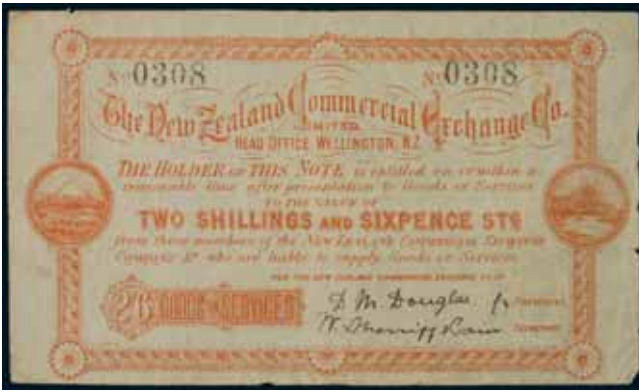 No 0308 No 0308
The New Zealand Commercial Exchange Co.
LIMITED.
HEAD OFFICE WELLINGTON, N.Z.
THE HOLDER OF THIS NOTE is entitled on or within a
reasonable time after presentation to Goods or Services
TO THE VALUE OF
TWO SHILLINGS AND SIXPENCE STG
from those members of the NEW ZEALAND COMMERCIAL EXCHANGE
COMPANY LD who are liable to supply Goods or Services
FOR THE NEW ZEALAND COMMERCIAL EXCHANGE CO LD
2/6 GOODS OR SERVICES
D M Douglas
W.